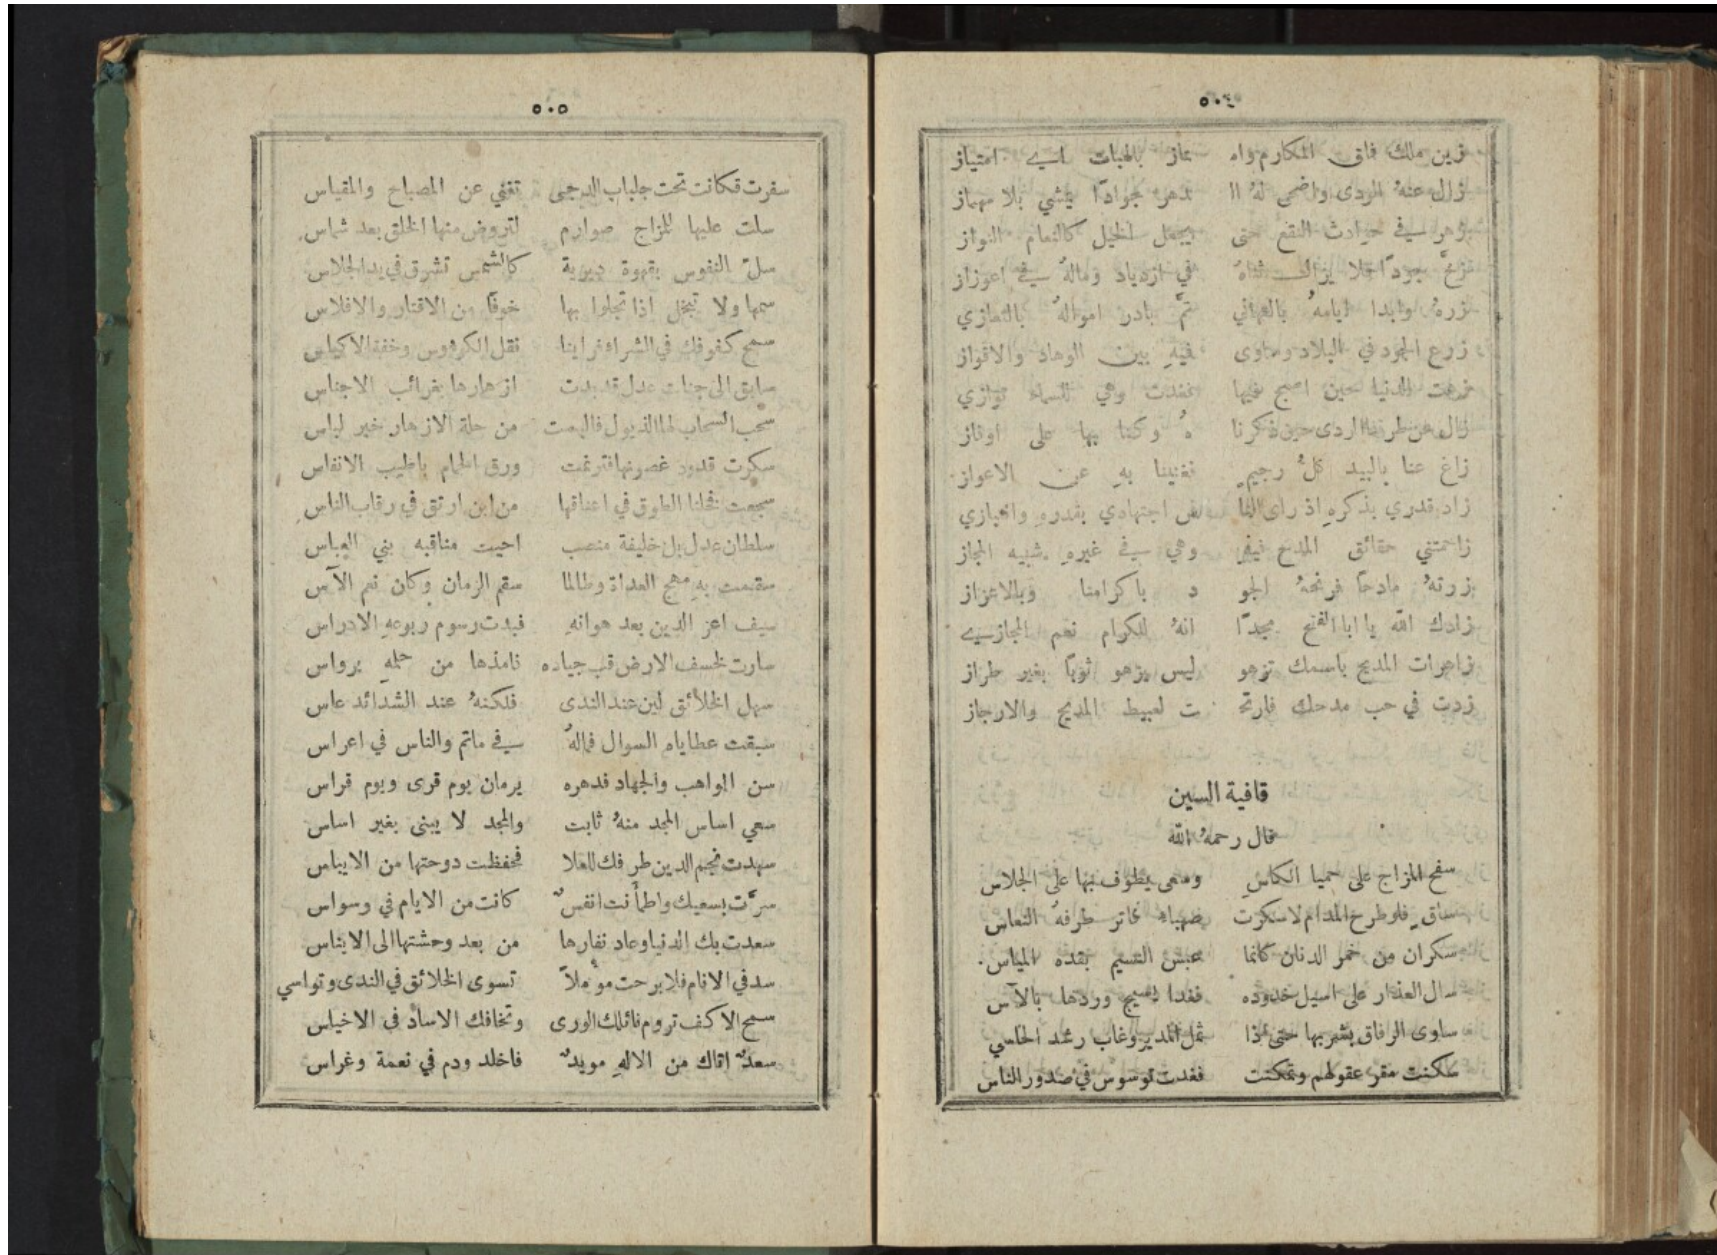 ٥٠٤
زين ملك فاق المكارم واه تماز بالهبات اي امتياز
زال عنهُ الردى واضحى لهُ ال دهر جوادًا يمشي بلا مهماز
في حوادث النقع حتى يجعل الخيل كالنعام النواز
جودًا فلا يزال ثناهُ في ازدياد ومالهُ في اعوزاز
زرهُ وابدا ايامهُ بالتهاني ثمَّ بادر اموالهُ بالتعازي
زرع الجود في البلاد وساوى فيهِ بين الوهاد والاقواز
زهت الدنيا حين اصبح فيها فغدت وهي للسماء توازي
زال عن طرفنا الردى حين ذكرنا هُ وكنا بها على اوفاز
زاغ عنا بالبيد كلُّ رجيمٍ فغنينا بهِ عن الاعواز
زاد قدري بذكرهِ اذ راى النا س اجتهادي بقدرهِ وانحيازي
زاحمتني حقائق المدح فيهِ وهي في غيرهِ شبيه المجاز
زرتهُ مادحًا فرنحهُ الجو د باكرامنا وبالاعزاز
زادك الله يا ابا الفتح مجدًا انهُ للكرام نعم المجازي
زاهرات المديح باسمك تزهو ليس يزهو ثوبًا بغير طراز
زدت في حب مدحك فارتح ت لعبيط المديح والارجاز
قافية السين
قال رحمهُ الله
سفح المزاج على حميا الكاسِ وسعى يطوف بها على الجلاس
ساقٍ فلو طرح المدام لاسكرت صهباء فاتر طرفهُ النعاس
سكران من خمر الدنان كانما عبس النسيم بقده المياس
سال العذار على اسيل خدوده فغدا يسيج وردها بالآس
ساوى الرفاق بشربها حتى غذا ثمل المدير وغاب رشد الحاسي
سكنت مقر عقولهم وتمكنت فغدت توسوس في صدور الناس
٥٠٥
سفرت فكانت تحت جلباب الدجى تغني عن المصباح والمقياس
سلت عليها للمزاج صوارم لتروض منها الخلق بعد شماس
سلّ النفوس بقهوة ديرية كالشمس تشرق في يد الجلاس
سمها ولا تبخل اذا تجلوا بها خوفًا من الاقتار والافلاس
سمح كفوفك في الشراء فراينا نقل الكوٴوس وخفة الاكياس
سابق الى جنات عدل قد بدت ازهارها بغرائب الاجناس
سحب السحاب لها الذيول فالبست من حلة الازهار خير لباس
سكرت قدود غصونها فترنمت ورق الحمام باطيب الانفاس
سجعت فخلنا الطوق في اعناقها من ابن ارتق في رقاب الناس
سلطان عدل بل خليفة منصب احيت مناقبه بني العباس
سقمت بهِ مهج العداة وطالما سقم الزمان وكان نعم الآس
سيف اعز الدين بعد هوانهِ فبدت رسوم ربوعهِ الادراس
سارت لخسف الارض قب جياده فامذها من حلمهِ برواس
سهل الخلائق لين عند الندى فلكنهُ عند الشدائد عاس
سبقت عطاياه السوال فمالهُ في ماتم والناس في اعراس
سن المواهب والجهاد فدهره يرمان يوم قرى ويوم قراس
سعي اساس المجد منهُ ثابت والمجد لا يبنى بغير اساس
سهدت نجم الدين طرفك للعلا فحفظت دوحتها من الايباس
سرَّت بسعيك واطمأنت انفسٌ كانت من الايام في وسواس
سعدت بك الدنيا وعاد نفارها من بعد وحشتها الى الايناس
سد في الانام فلا برحت موٴملاً تسوى الخلائق في الندى وتواسي
سمح الاكف تروم نائلك الورى وتخافك الاساد في الاخياس
سعدٌ اتاك من الالهِ مويدٌ فاخلد ودم في نعمة وغراس